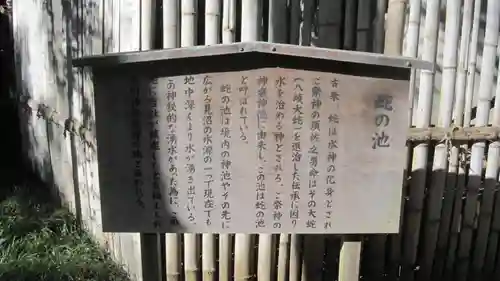 蛇の池
古来 蛇は水神の化身とされ
ご祭神の須佐之男命はその大蛇
(八岐大蛇)を退治した伝承に因り
水を治める神とされる。ご祭神の
神威神徳に由来し、この池は蛇の池
と呼ばれている。
蛇の池は境内の神池やその先に
広がる見沼の水源の一つで現在でも
地中深くより水が湧き出ている。
この神秘的な湧水があった為に、この